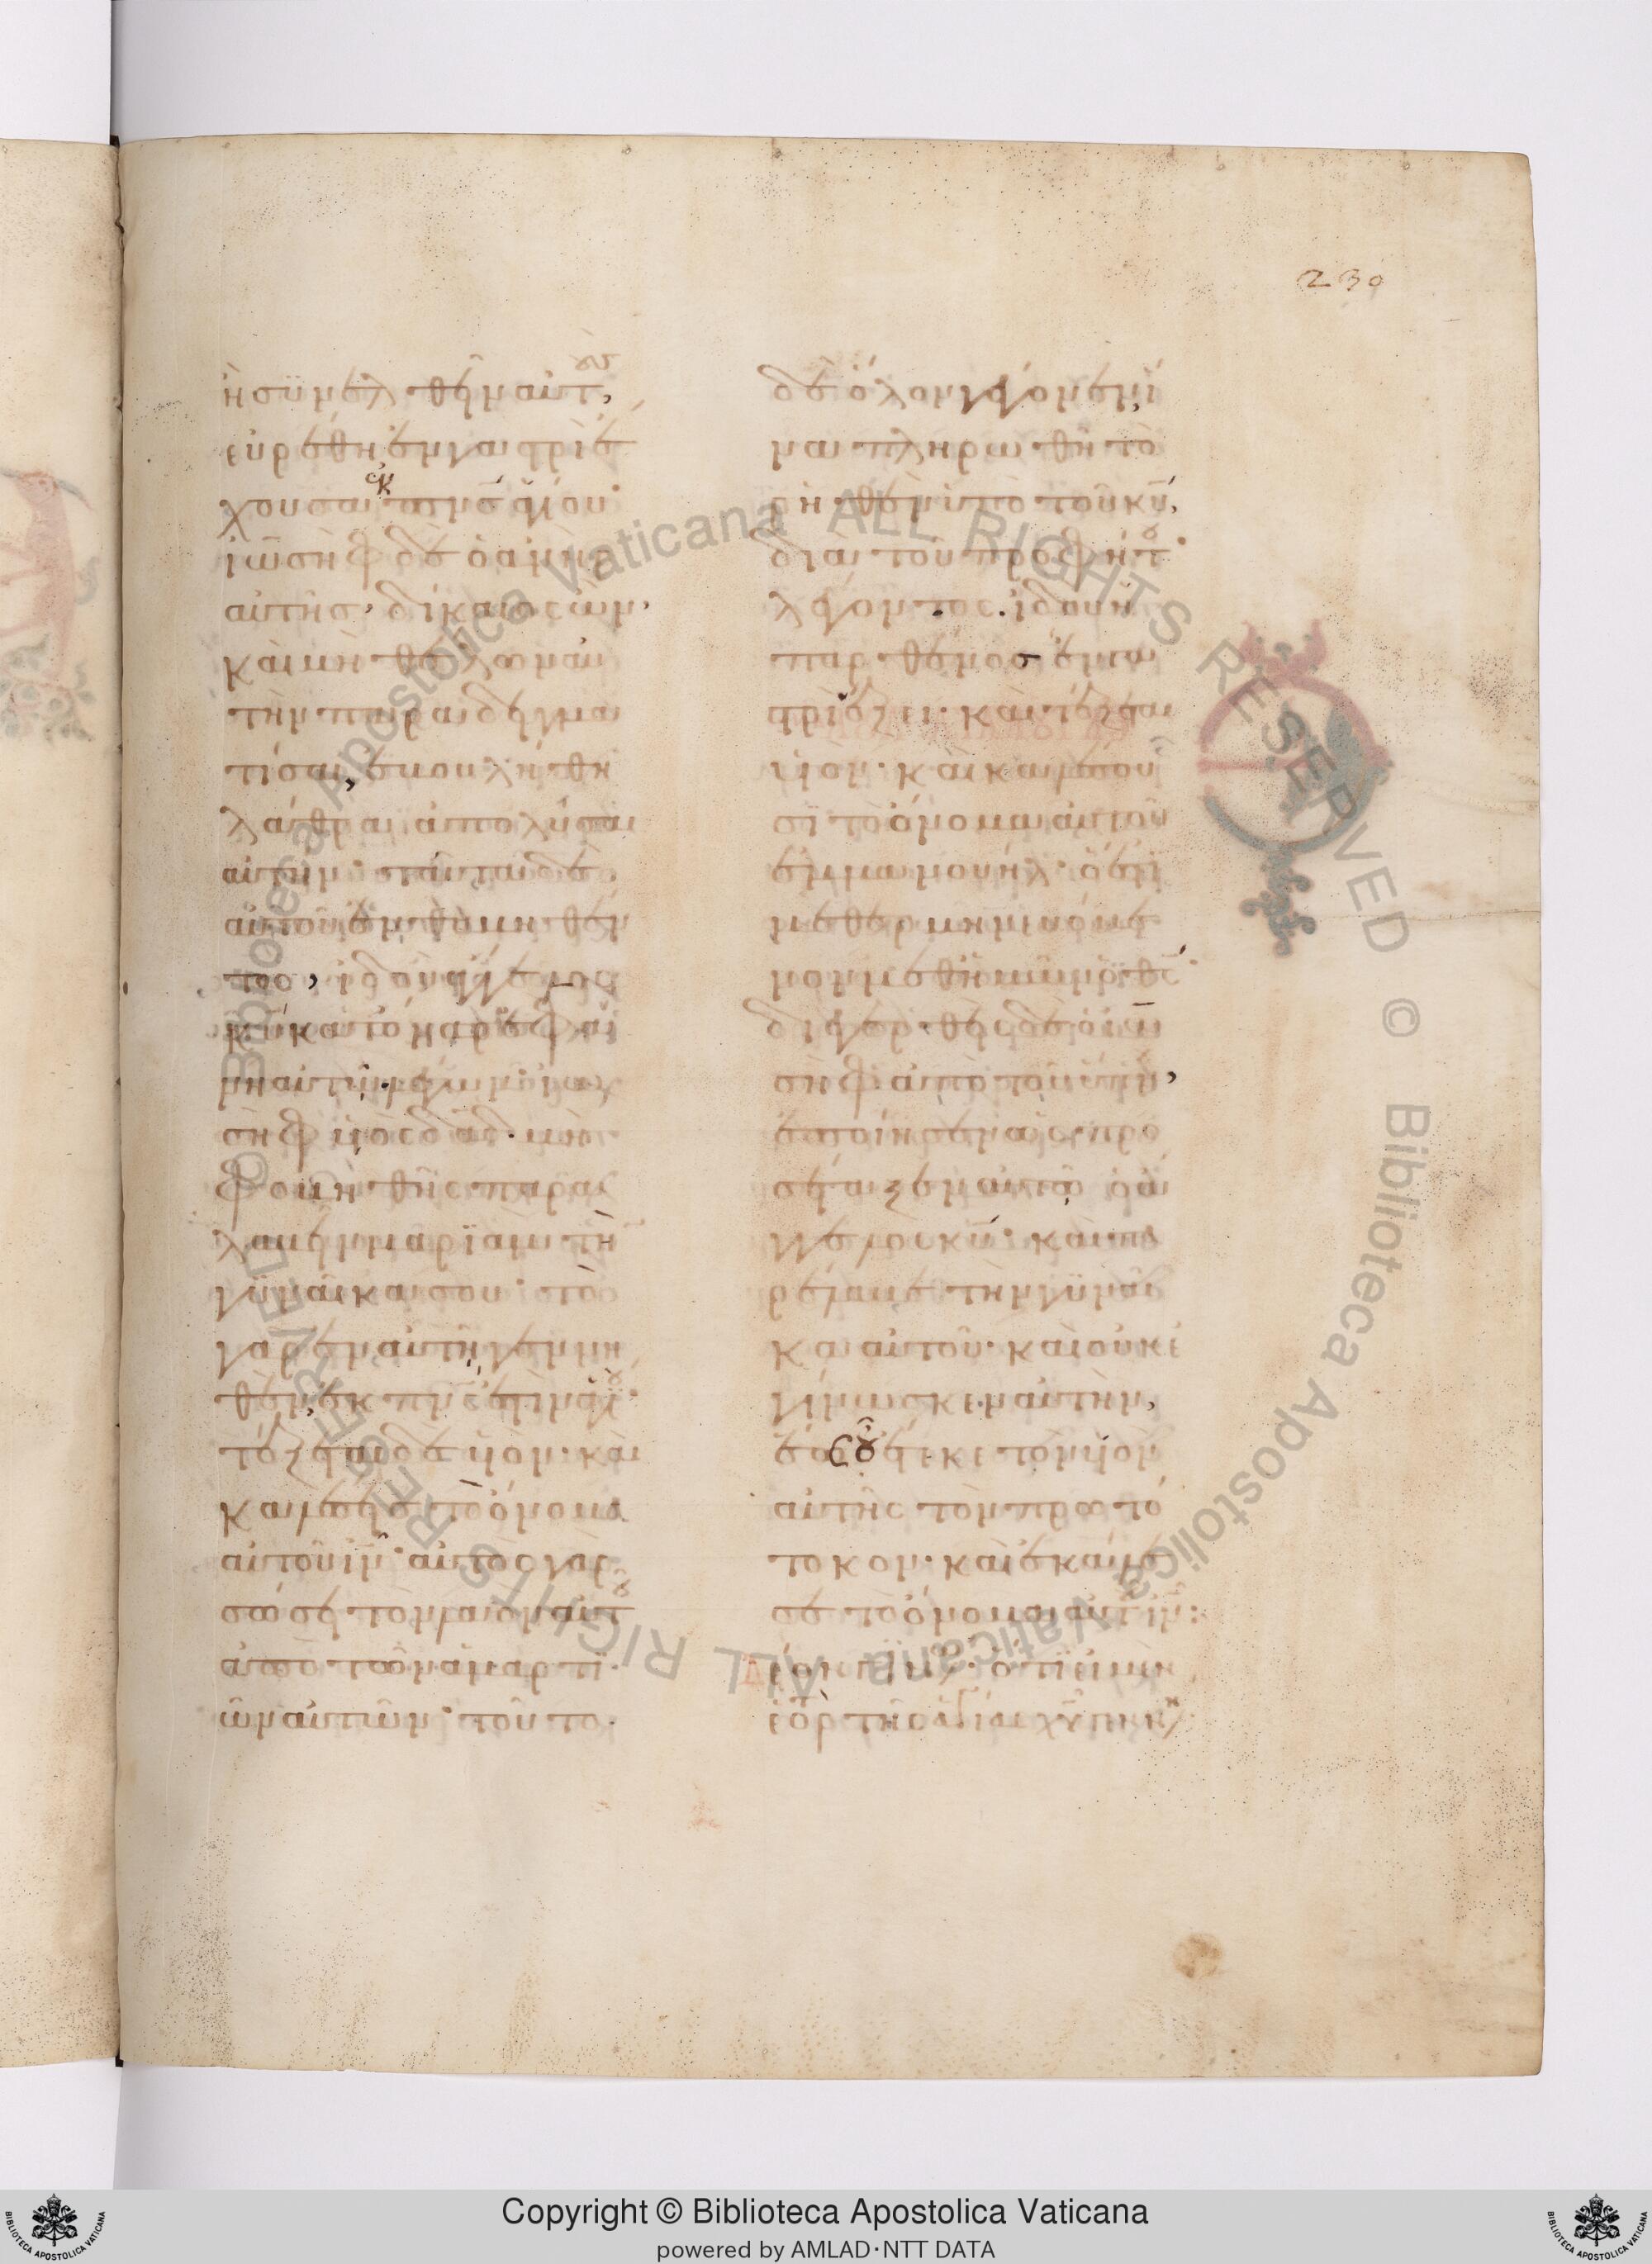 230
ἢ συνελθεῖν αὐτοὺς,
εὑρέθη ἐν γαστρὶ ἔ
χουσα ἐκ πνς ἁγίου·
ἰωσὴφ δὲ ὁ ἀνὴρ
αὐτῆς, δίκαιος ὢν,
καὶ μὴ θέλων αὐ
τὴν παραδειγμα
τίσαι, ἐβουλήθη
λάθρα ἀπολῦσαι
αὐτήν· ταῦτα δὲ
αὐτοῦ ἐνθυμηθέν
τος, ἰδοὺ ἄγγελος
κυ κατ' ὄναρ ἐφά
νη αὐτῷ λέγων· ἰω
σὴφ υἱὸς δαδ· μὴ
φοβηθῇς παρα
λαβεῖν μαριὰμ τὴν
γυναῖκα σου· τὸ
γὰρ ἐν αὐτῇ γεννη
θὲν, ἐκ πνς ἐστιν ἁγίου·
τέξεται δὲ υἱόν· καὶ
καλέσεις τὸ ὄνομα
αὐτοῦ ιν· αὐτὸς γὰρ
σώσει τὸν λαὸν αὐτοῦ
ἀπὸ τῶν ἁμαρτι
ῶν αὐτῶν· τοῦτο
δὲ ὅλον γέγονεν ἵ
να πληρωθῇ τὸ
ῥηθὲν ὑπὸ τοῦ κυ,
διὰ τοῦ προφήτου
λέγοντος· ἰδοὺ ἡ
παρθένος ἐν γα
στρὶ ἕξει· καὶ τέξεται
υἱόν· καὶ καλέσου
σι τὸ ὄνομα αὐτοῦ
ἐμμανουήλ· ὅ ἐστι
μεθερμηνευόμε
νον μεθ' ἡμῶν ὁ θς·
διεγερθεὶς δὲ ὁ ἰω
σὴφ ἀπὸ τοῦ ὕπνου,
ἐποίησεν ὡς προ
σέταξεν αὐτῷ ὁ ἄγ
γελος κυ· καὶ πα
ρέλαβε τὴν γυναῖ
κα αὐτοῦ· καὶ οὐκ ἐ
γίνωσκεν αὐτὴν,
ἕως οὗ ἔτεκε τὸν υἱὸν
αὐτῆς τὸν πρωτό
τοκον· καὶ ἐκάλε
σε τὸ ὄνομα αὐτοῦ ιν:
Copyright © Biblioteca Apostolica Vaticana
powered by AMLAD·NTT DATA